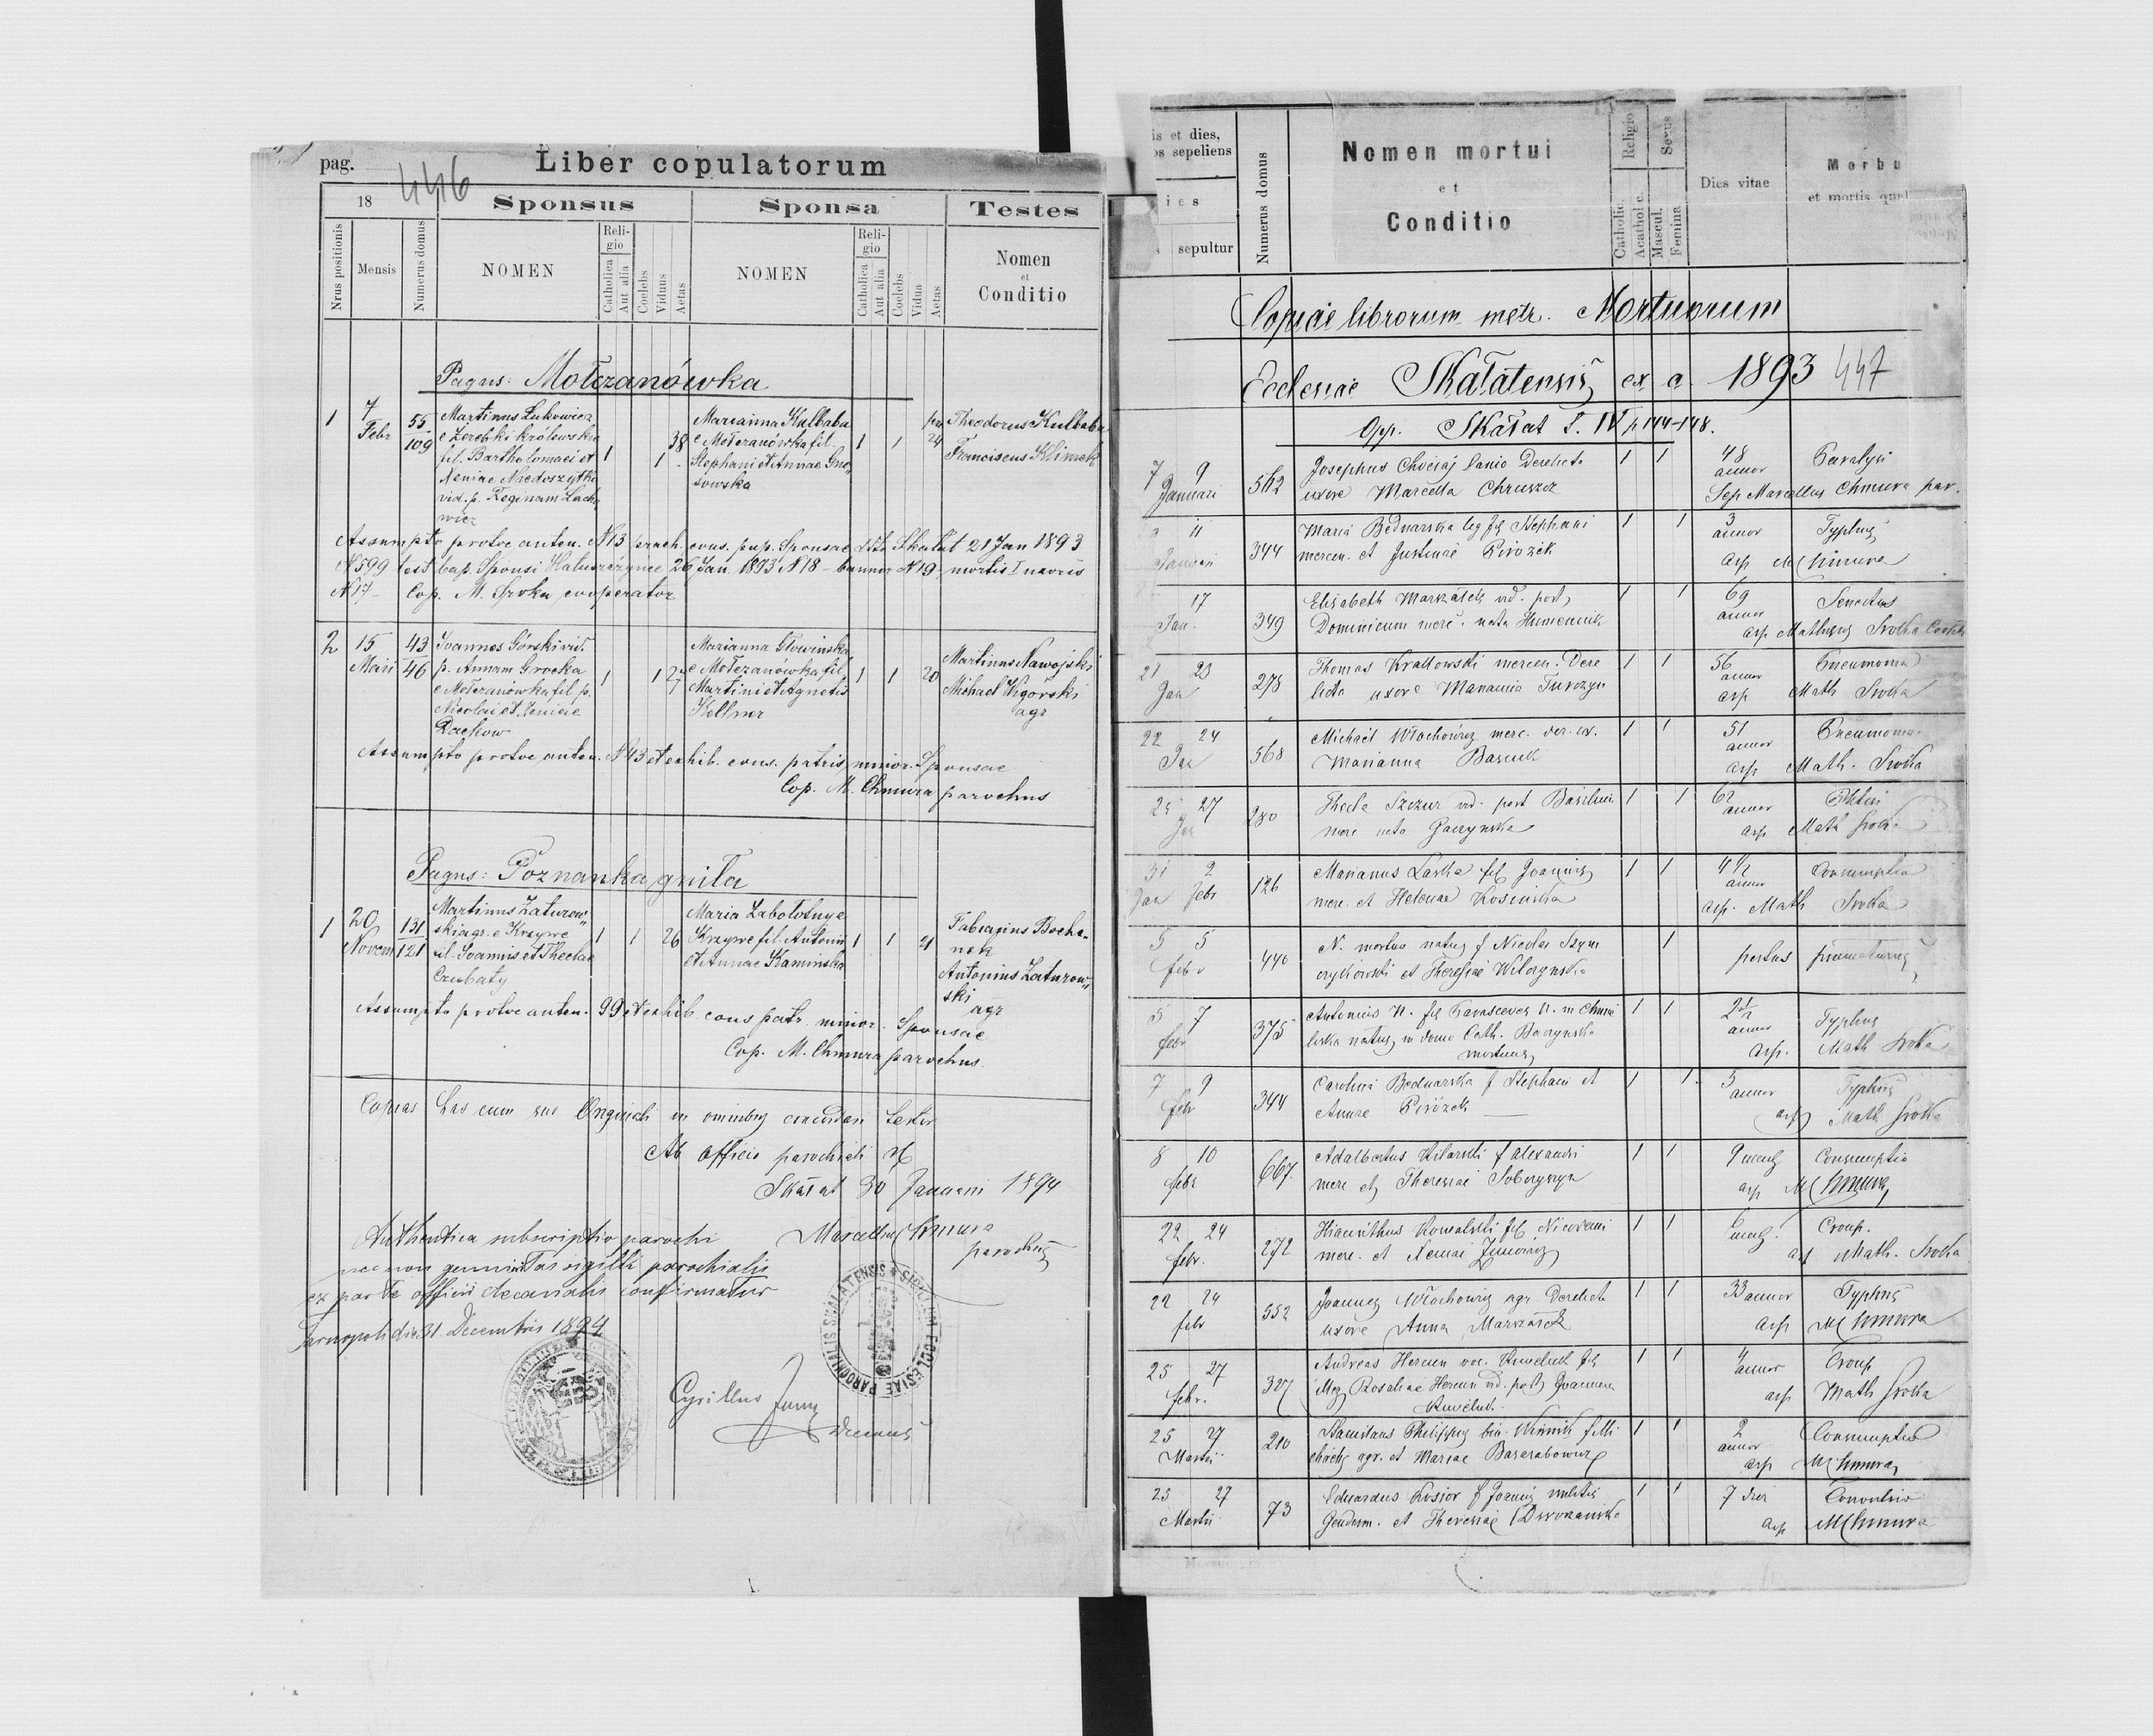 pag. 446 Liber copulatorum
18
Sponsus Sponsa Testes
Nrus positionis Mensis Numerus domus NOMEN Religio Catholica Aut alia Coelebs Viduus Aetas NOMEN Religio Catholica Aut alia Coelebs Vidua Aetas Nomen et Conditio
Pagus: Mołczanówka
1 7 Febr 55 109 Martinus Łukowicz
e Zerebki królewskie
fil. Bartholomaei et
Xeniae Niedoszytko
vid. p. Reginam Lach
wicz
1 1 38
Marianna Kulbaba
e Mołczanówka fil.
Stephani et Annae Gno
sowska
1 1 24
Theodorus Kulbaba
Franciscus Klimek
Assumpto protoc anten. N 13 cons. pup. Sponsae dto Skałat 21 Jan 1893
N 599 test bap. Sponsi 26 Jan. 1893 N 18 N 19 mortis I uxoris
N 17 Cop. M. Sroka cooperator
2 15 Maii 43 46 Joannes Górski vid.
p. Annam Grocka
e Mołczanówka fil. p.
Nicolai et Xeniae
Dachow
1 1 27
Marianna Głowinska
e Mołczanówka fil
Martini et Agnetis
Kellner
1 1 20
Martinus Nawojski
Michael Kigórski
agr
Assumpto protoc anten. N 43 et exhib. cons. patris minor. Sponsae
Cop. M. Chmura parochus
Pagus: Poznanka gniła
1 20 Novem 131 121 Martinus Zaturow
ski agr. e Krzywe
fil. Joannis et Theclae
Czubaty
1 1 26
Maria Zabolotnye
Krzywe fil. Antonii
et Annae Kaminska
1 1 21
Fabianus Bocha
nek
Antonius Zaturow
ski
agr
Assumpto protoc anten. 99 et exhib cons patr. minor. Sponsae
Cop. M. Chmura parochus.
Copias has cum suo Originali in omnibus concordare testor
Ab officio parochiali
Skałat 30 Januarii 1894
Marcellus Chmura
parochus
Authentica subscriptio parochi
nec non genuinitas sigilli parochialis
ex parte officii decanalis confirmatur
Tarnopoli die 31 Decembris 1894
Cyrillus
Decanus
SIGILLUM ECCLESIAE PAROCHIALIS SKALATENSIS
is et dies,
os sepeliens
ies
sepultur
Numerus domus
Nomen mortui
et
Conditio
Religio Catholic. Acatholic. Sexus Mascul. Femina
Dies vitae
Morbu
et mortis qual
Copiae librorum metr. Mortuorum
Ecclesiae Skałatensis ex a. 1893 447
Opp. Skałat T. IV p 144-148.
7 9 Januari 562 Josephus lanio Derelicta 1 1 48 annor Paralysi
uxore Marcella Chruszcz Sep Marcellus Chmura par.
11 Januari 344 Maria Bednarska leg fil Stephani 1 1 3 annor Typhus
mercen. et Justinae Pirożek asp M Chmura
17 Jan. 349 Elisabeth Markasek vid. post 1 1 69 annor Senectus
Dominicum merc. nata Humeniuk asp Mathaeus Sroka Coop
21 23 Jan 278 Thomas Krallowski mercen. Dere 1 1 56 annor Pneumonia
licta uxore Marianna Turczyn asp Math Sroka
22 24 Jan 568 Michael Włochowicz merc. der. ux. 1 1 51 annor Pneumonia
Marianna asp Math. Sroka
25 27 Jan 280 Thecla Szczur vid. post Basilium 1 1 62 annor Phtisi
merc nata Gaczynska asp Math Sroka
31 2 Jan Febr 126 Marianus Laska fil Joannis 1 1 4 1/2 annor Consumptio
merc. et Helenae Kosinska asp. Math Sroka
5 5 febr 440 N. mortuo natus f Nicolai Szym 1 partus praematurus
et Theresiae
5 7 febr 375 Antonius N. fil Parascevae N. in Chmie 1 1 2 1/2 annor Typhus
liska natus, in domo Cath. Baczynska asp. Math Sroka
mortuus
7 9 febr 344 Carolina Bednarska f Stephani et 1 1. 5 annor Typhus
Annae Pirożek asp Math Sroka
8 10 febr 667. Adalbertus Kilarski f alexandri 1 1 9 mens Consumptio
merc et Theresiae asp M Chmura
22 24 febr. 272 Hiacinthus Kowalski fil Nicodemi 1 1 mens Croup.
merc. et Xeniae asp Math. Sroka
22 24 febr 552 Joannes Włochowicz agr Derelicta 1 1 33 annor Typhus
uxore Anna Markasek asp M Chmura
25 27 febr. 327 Andreas Hercun voc. fil 1 1 4 annor Croup
Illeg Rosaliae Hercun vid. post Joannem asp Math Sroka
25 27 Martii 210 Stanislaus Philippus bin. Winnik f Mi 1 1 2 annor Consumptio
chaelis agr. et Mariae Baserabowicz asp M Chmura
25 27 Martii 73 Eduardus Kosior f Joannis militis 1 1 7 dier Convulsio
Gendarm. et Theresiae Dworzanska asp M Chmura